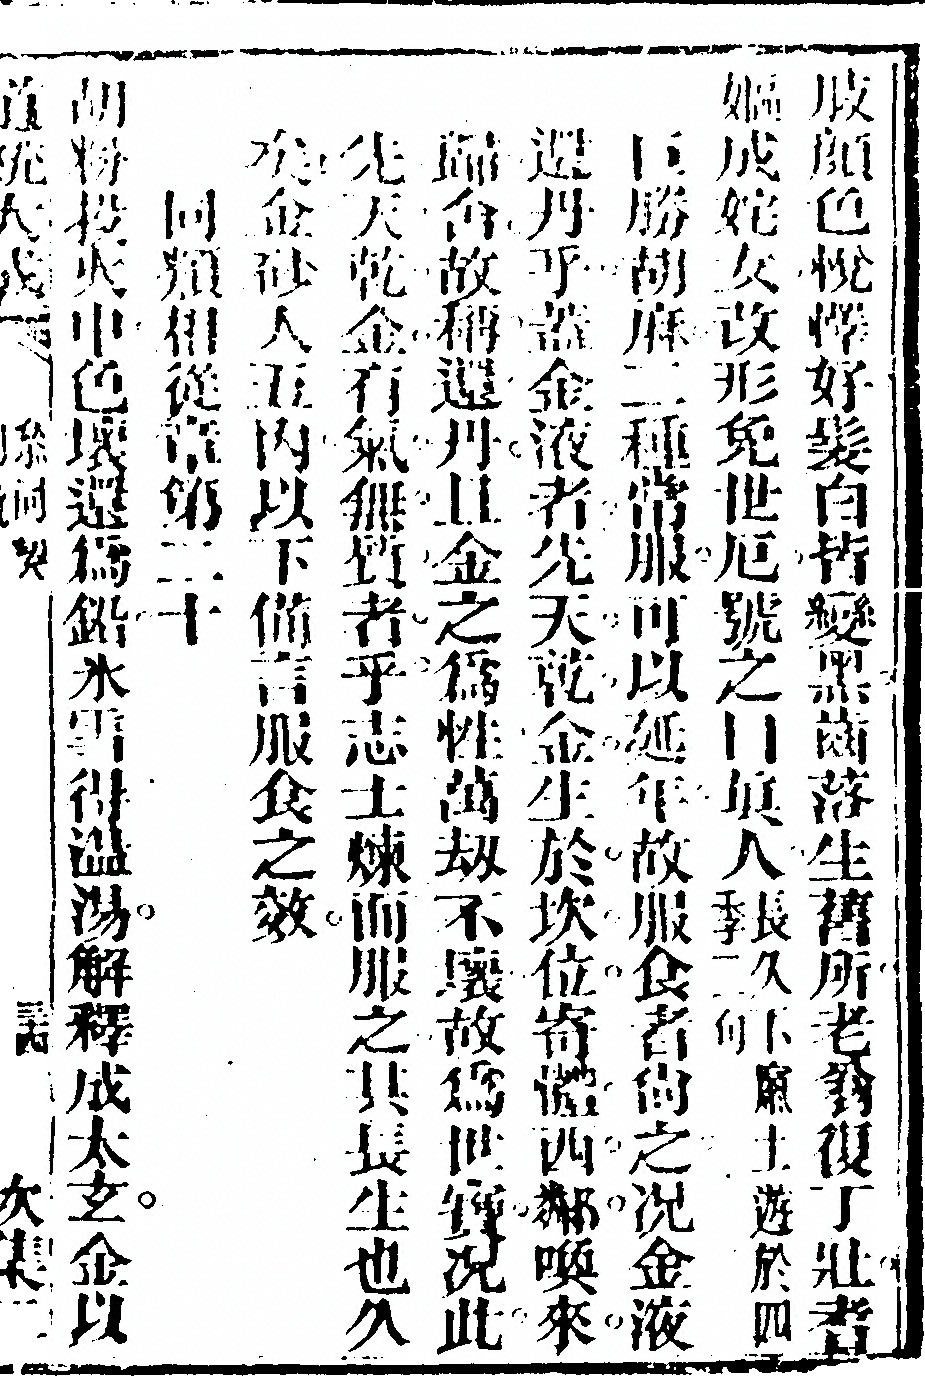 肢顔色悅懌好髮白皆變黑齒落生舊所老翁復丁壯耆
嫗成姹女改形免世厄號之曰眞人長久下廉土遊於四
季二句
巨勝胡麻二種常服可以延年故服食者尚之况金液
還丹乎葢金液者先天乾金生於坎位寄體西鄰喚來
歸舍故稱還丹且金之爲性萬刼不壞故爲世寶况此
先天乾金有氣無質者乎志士煉而服之其長生也久
矣金砂入五内以下備言服食之效
同類相從章第二十
胡粉投火中色壞還爲鉛氷雪得溫湯解釋成太玄金以
道統大成
叅同契
次集二